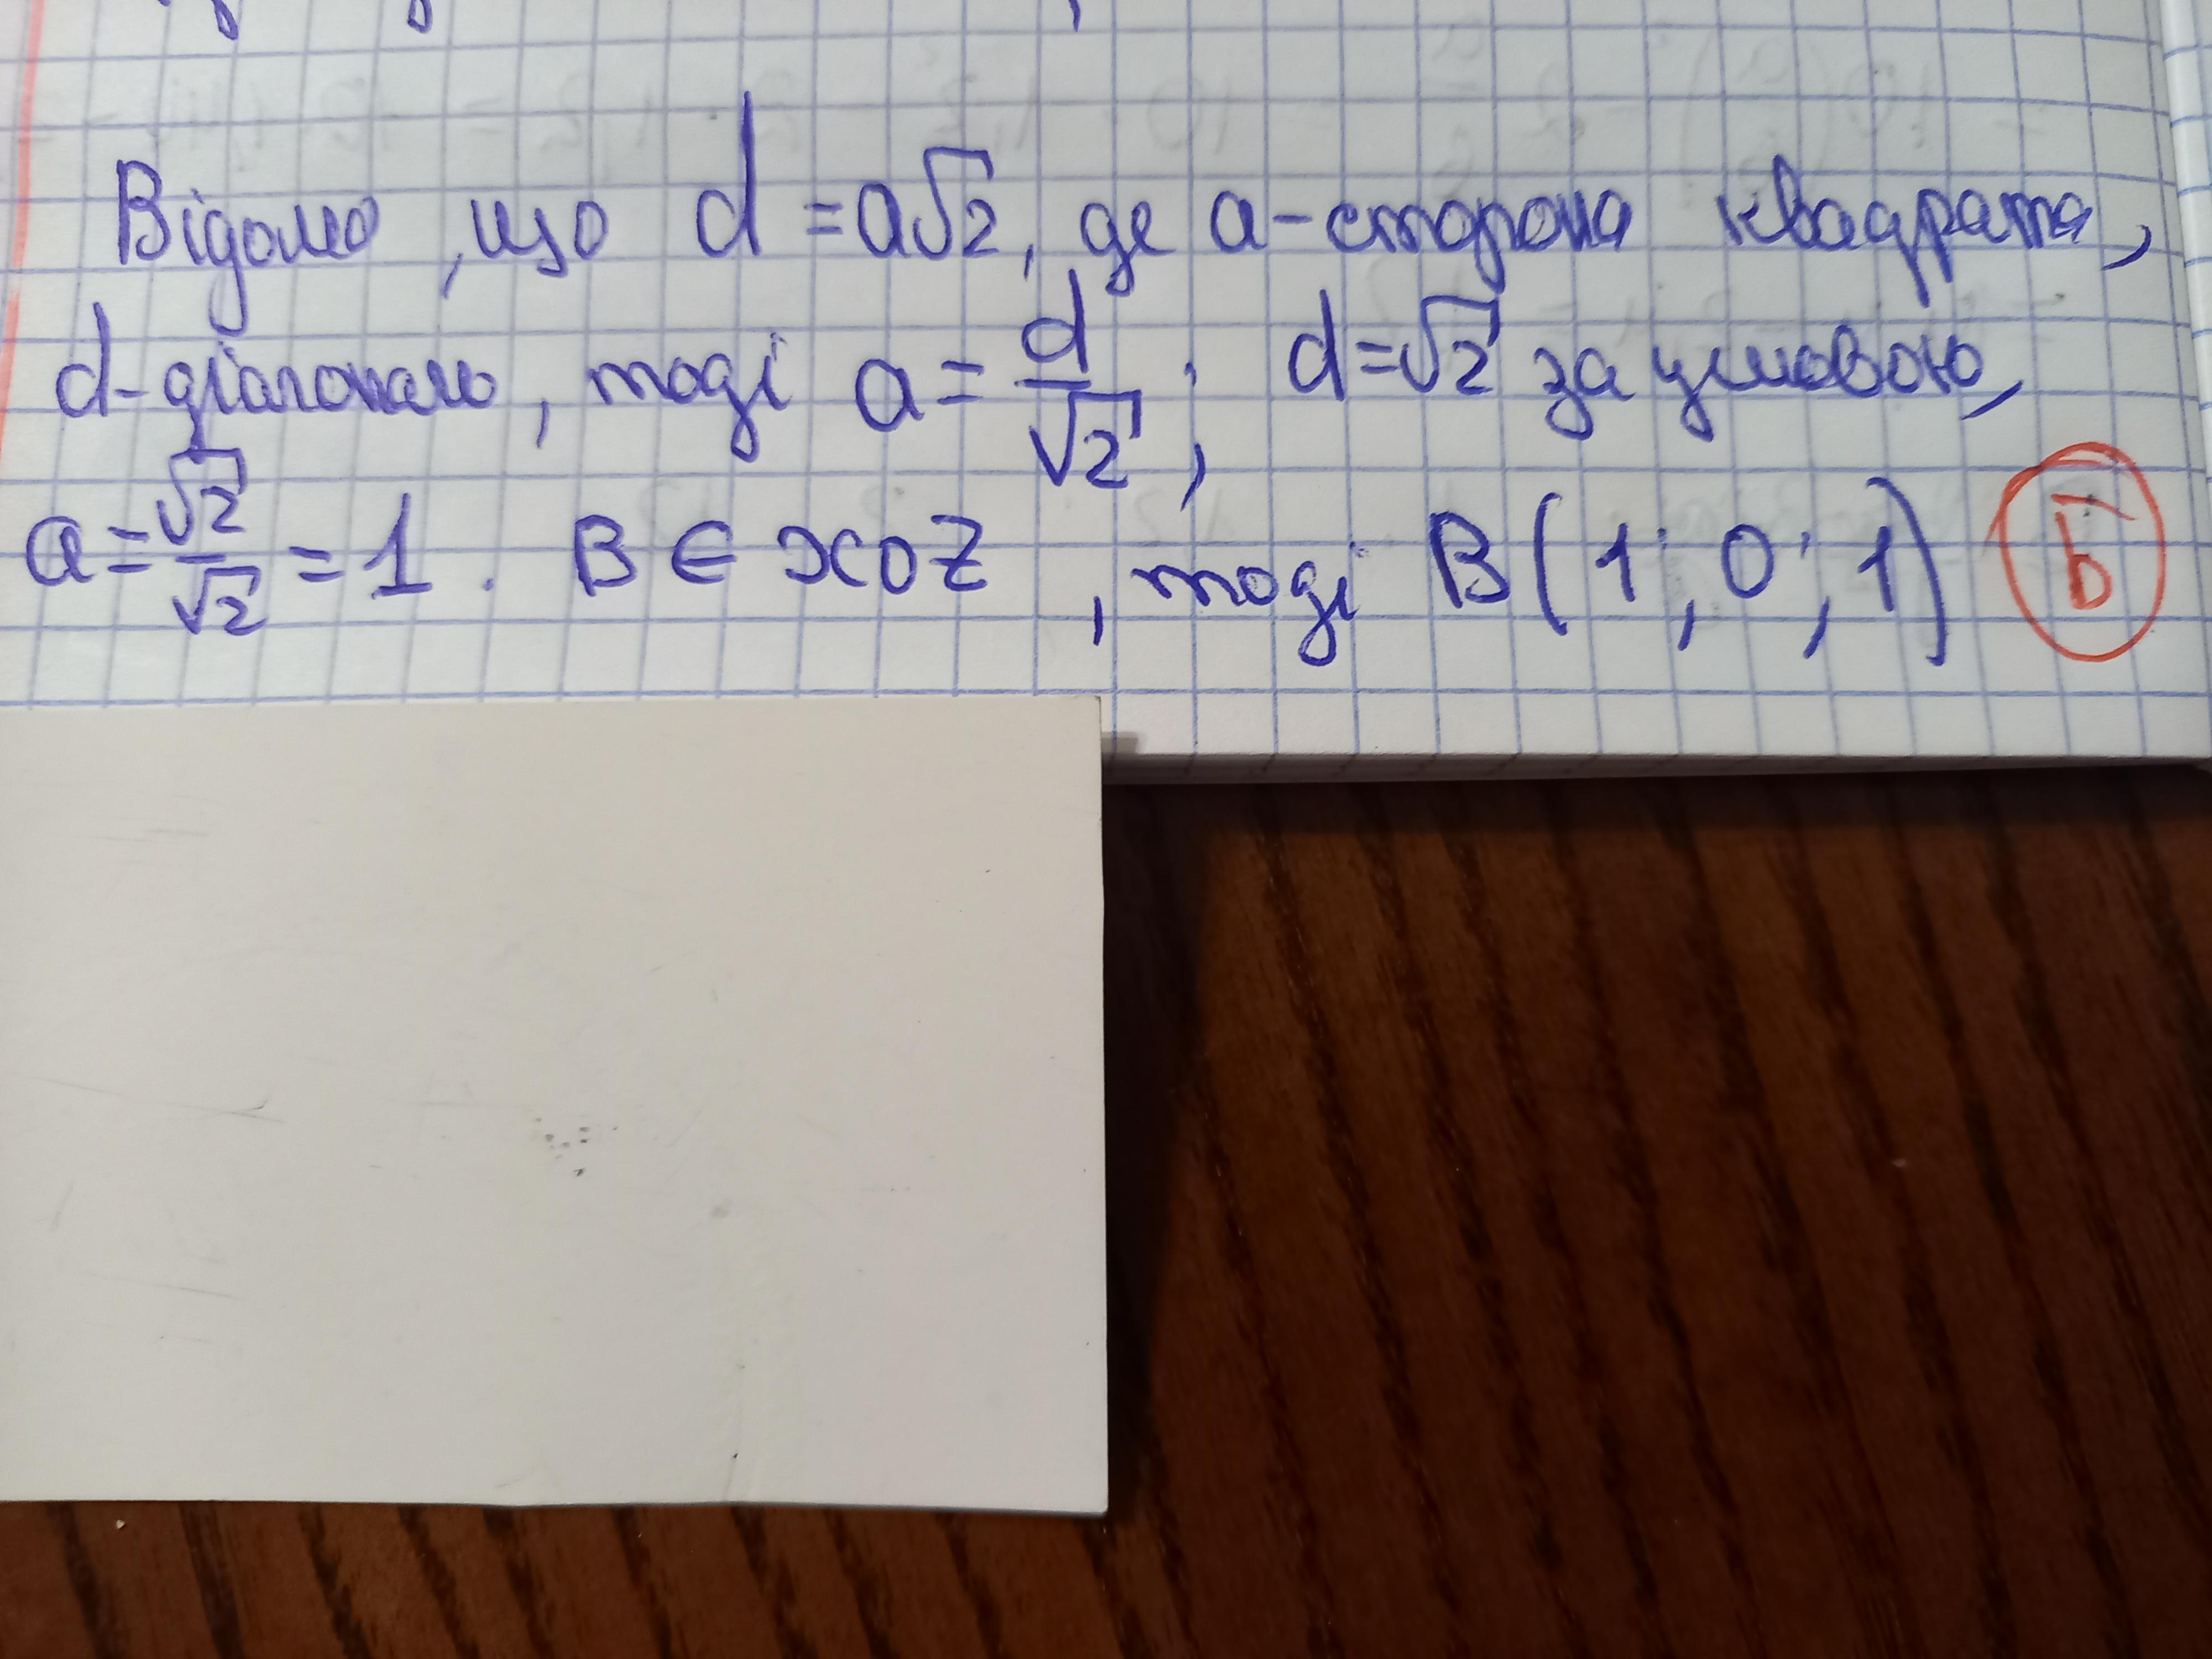 Відомо, що d = a√2, де a - сторона квадрата,
d - діагональ, тоді a = d/√2; d = √2 за умовою,
a = √2/√2 = 1. B ∈ xOz, тоді B(1; 0; 1) Б